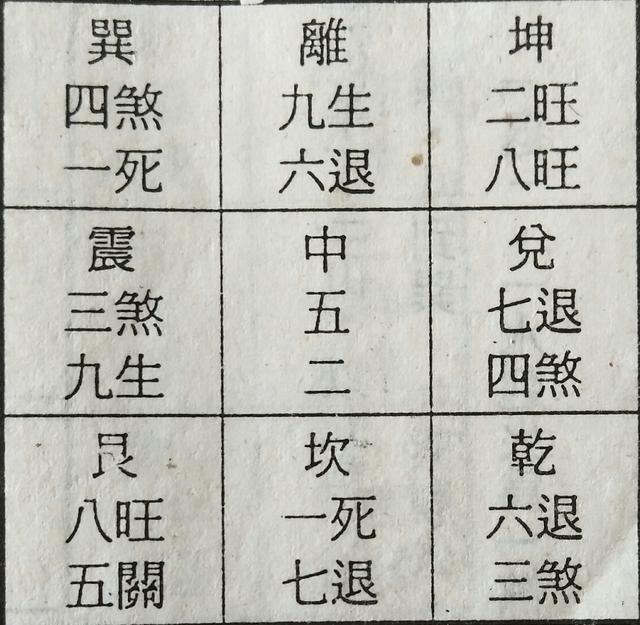 巽
四煞
一死
離
九生
六退
坤
二旺
八旺
震
三煞
九生
中
五
二
兌
七退
四煞
艮
八旺
五關
坎
一死
七退
乾
六退
三煞